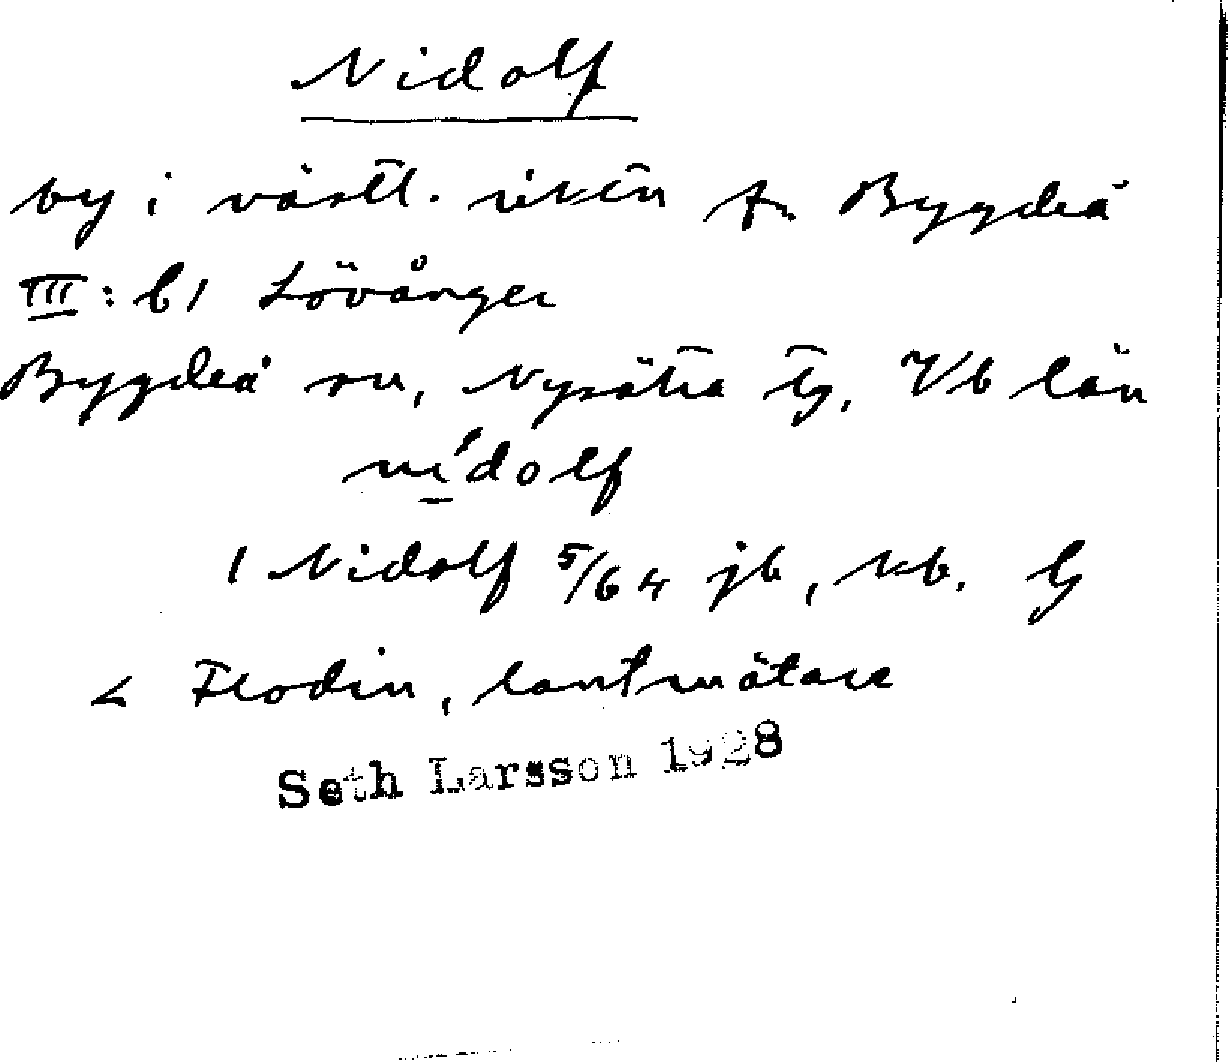 Nidolf
by i västl. riktn fr. Bygdeå
III: b1 Lövånger
Bygdeå sn, Nysätra tg, Vb län
nídolf
1 Nidolf 5/64 jb, kb. lg
< Flodin, lantmätare
Seth Larsson 1928